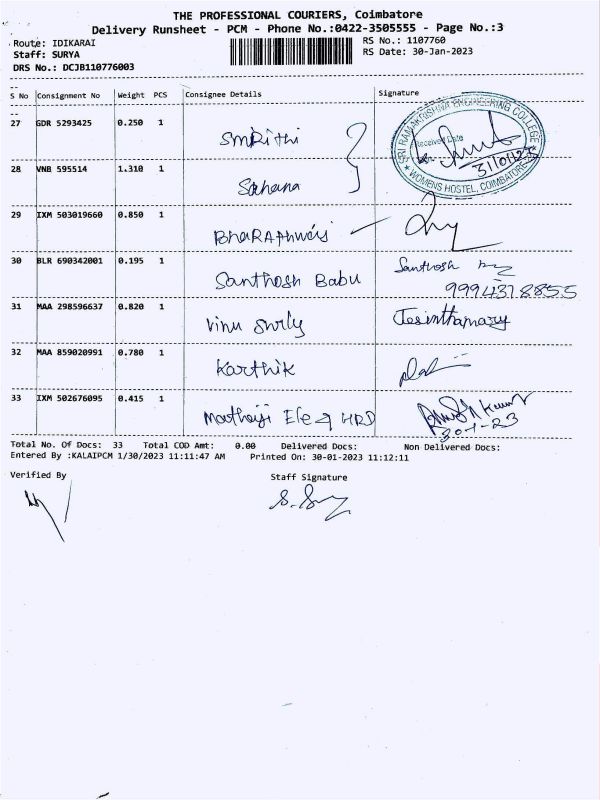 THE PROFESSIONAL COURIERS, Coimbatore
Delivery Runsheet - PCM - Phone No.:0422-3505555 - Page No.:3
Route: IDIKARAI RS No.: 1107760
Staff: SURYA RS Date: 30-Jan-2023
DRS No.: DCJB110776003
S No Consignment No Weight PCS Consignee Details Signature
27 GDR 5293425 0.250 1 Smrithi
SRI RAMAKRISHNA ENGINEERING COLLEGE
Received Date
31/01/23
WOMENS HOSTEL, COIMBATORE
28 VNB 595514 1.310 1 Sahana
29 IXM 503019660 0.850 1
30 BLR 690342001 0.195 1 Santhosh Babu Santhosh
9994378855
31 MAA 298596637 0.820 1 Vinu Jesinthamary
32 MAA 859020991 0.780 1 Karthik
33 IXM 502676095 0.415 1 HRD
30-1-23
Total No. Of Docs: 33 Total COD Amt: 0.00 Delivered Docs: Non Delivered Docs:
Entered By :KALAIPCM 1/30/2023 11:11:47 AM Printed On: 30-01-2023 11:12:11
Verified By Staff Signature